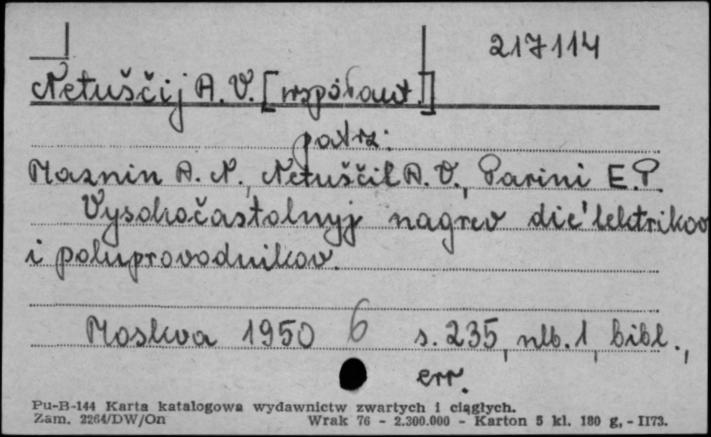 217114
Netuščij A. V. [współaut.]
patrz:
Maznin A. N., Netuščil A. V., Parini E. P.
Vysokočastotnyj nagrev diė'lektrikov
i poluprovodnikov.
Moskva 1950 6 s. 235, nlb. 1, bibl.,
err.
Pu-B-144 Karta katalogowa wydawnictw zwartych i ciągłych.
Zam. 2264/DW/On Wrak 76 - 2.300.000 - Karton 5 kl. 180 g, - II73.